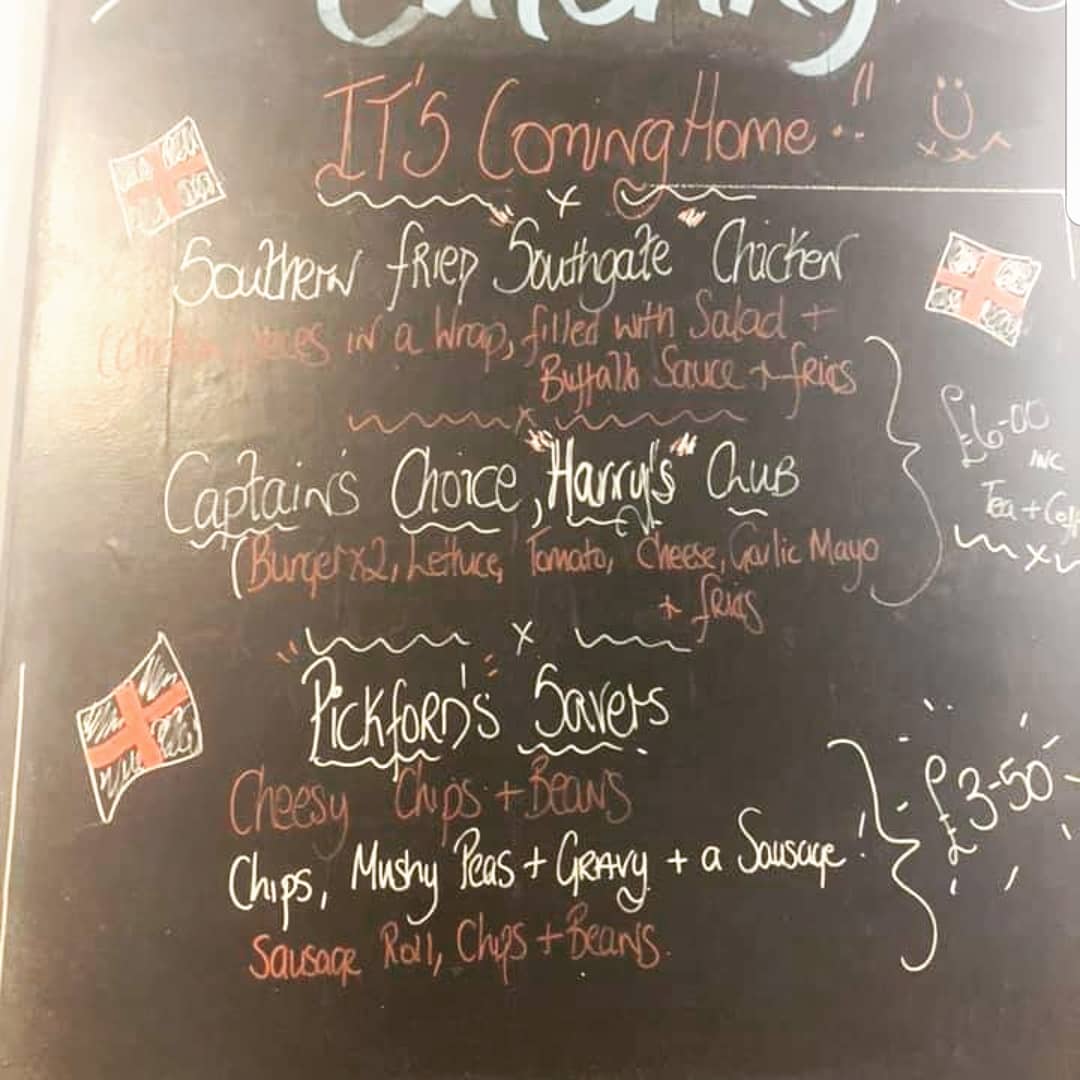 Catering
IT'S Coming Home..!!
Southern fried "Southgate" Chicken
(Chicken pieces in a Wrap, filled with Salad +
Buffallo Sauce + fries
Captain's Choice, "Harry's" Club
(Burger x2, Lettuce, Tomato, Cheese, Garlic Mayo
+ fries
£6-00
INC
Tea + Coff
"Pickford's" Savers
Cheesy Chips + Beans
Chips, Mushy Peas + Gravy + a Sausage!
£3-50
Sausage Roll, Chips + Beans.